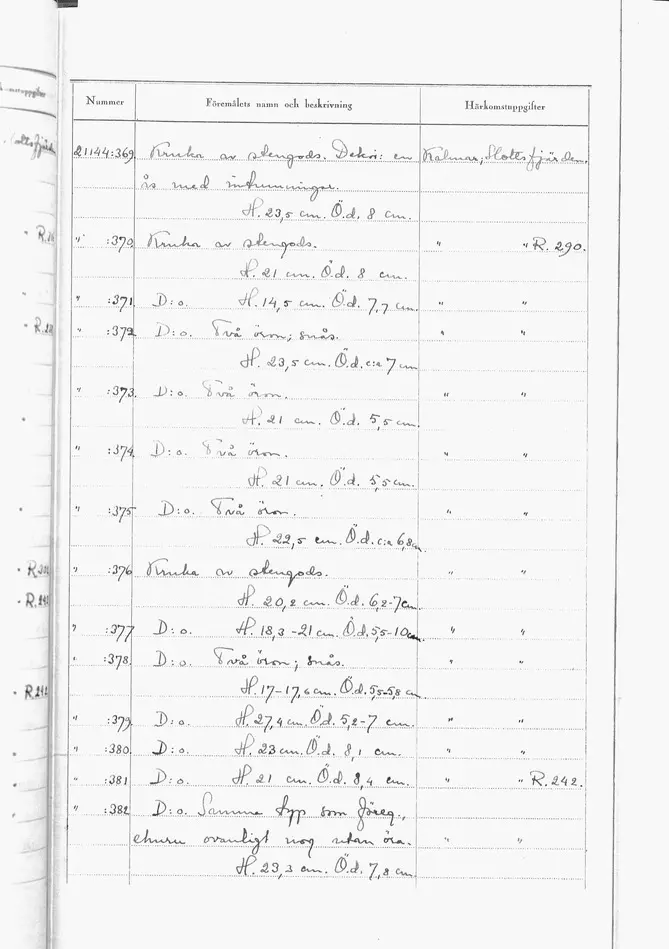 Nummer Föremålets namn och beskrivning Härkomstuppgifter
21144:369. Kruka av stengods. Dekor: en Kalmar, Slottsfjärden.
ås med intrumningar.
H. 23,5 cm. Ö.d. 8 cm.
" :370. Kruka av stengods. " " R. 290.
H. 21 cm. Ö.d. 8 cm.
" :371. D:o. H. 14,5 cm. Ö.d. 7,7 cm. " "
" :372. D:o. Två öron; snås. " "
H. 23,5 cm. Ö.d. c:a 7 cm
" :373. D:o. Två öron. " "
H. 21 cm. Ö.d. 5,5 cm.
" :374. D:o. Två öron. " "
H. 21 cm. Ö.d. 5,5 cm.
" :375 D:o. Två öron. " "
H. 22,5 cm. Ö.d. c:a 6,8 cm
" :376 Kruka av stengods. " "
H. 20,2 cm. Ö.d. 6,2-7 cm.
" :377 D:o. H. 18,3-21 cm. Ö.d. 5,5-10 cm. " "
" :378. D:o. Två öron; snås. " "
H. 17-17,6 cm. Ö.d. 5,5-5,8 cm
" :379. D:o. H. 27,4 cm. Ö.d. 5,2-7 cm. " "
" :380. D:o. H. 23 cm. Ö.d. 8,1 cm. " "
" :381 D:o. H. 21 cm. Ö.d. 8,4 cm. " " R. 242.
" :382 D:o. Samma typ som föreg.,
ehuru ovanligt nog utan öra. " "
H. 23,3 cm. Ö.d. 7,8 cm.